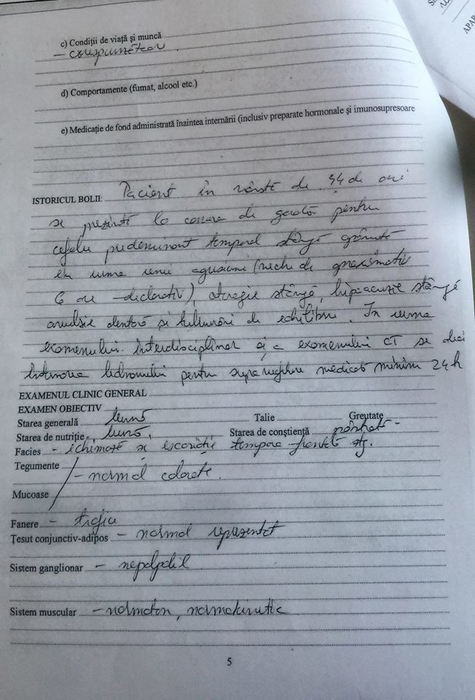 c) Condiții de viață și muncă
– corespunzătoare
d) Comportamente (fumat, alcool etc.)
e) Medicație de fond administrată înaintea internării (inclusiv preparate hormonale și imunosupresoare
ISTORICUL BOLII: Pacient în vârstă de 44 de ani
se prezintă la camera de gardă pentru
cefalee predominant temporal stângă apărută
în urma unei agresiuni (veche de aproximativ
6 ore declarativ), otalgie stângă, hipoacuzie stângă
avulsie dentară și tulburări de echilibru. În urma
examenului interdisciplinar și a examenului CT se decide
internarea bolnavului pentru supraveghere medicală minim 24h
EXAMENUL CLINIC GENERAL
EXAMEN OBIECTIV
Starea generală bună Talie Greutate
Starea de nutriție bună, Starea de conștiență păstrată -
Facies - echimoze și escoriații temporo frontală stg.
Tegumente
– normal colorate.
Mucoase
Fanere –
Țesut conjunctiv-adipos – normal reprezentat
Sistem ganglionar – nepalpabil
Sistem muscular – normoton, normokinetic
5